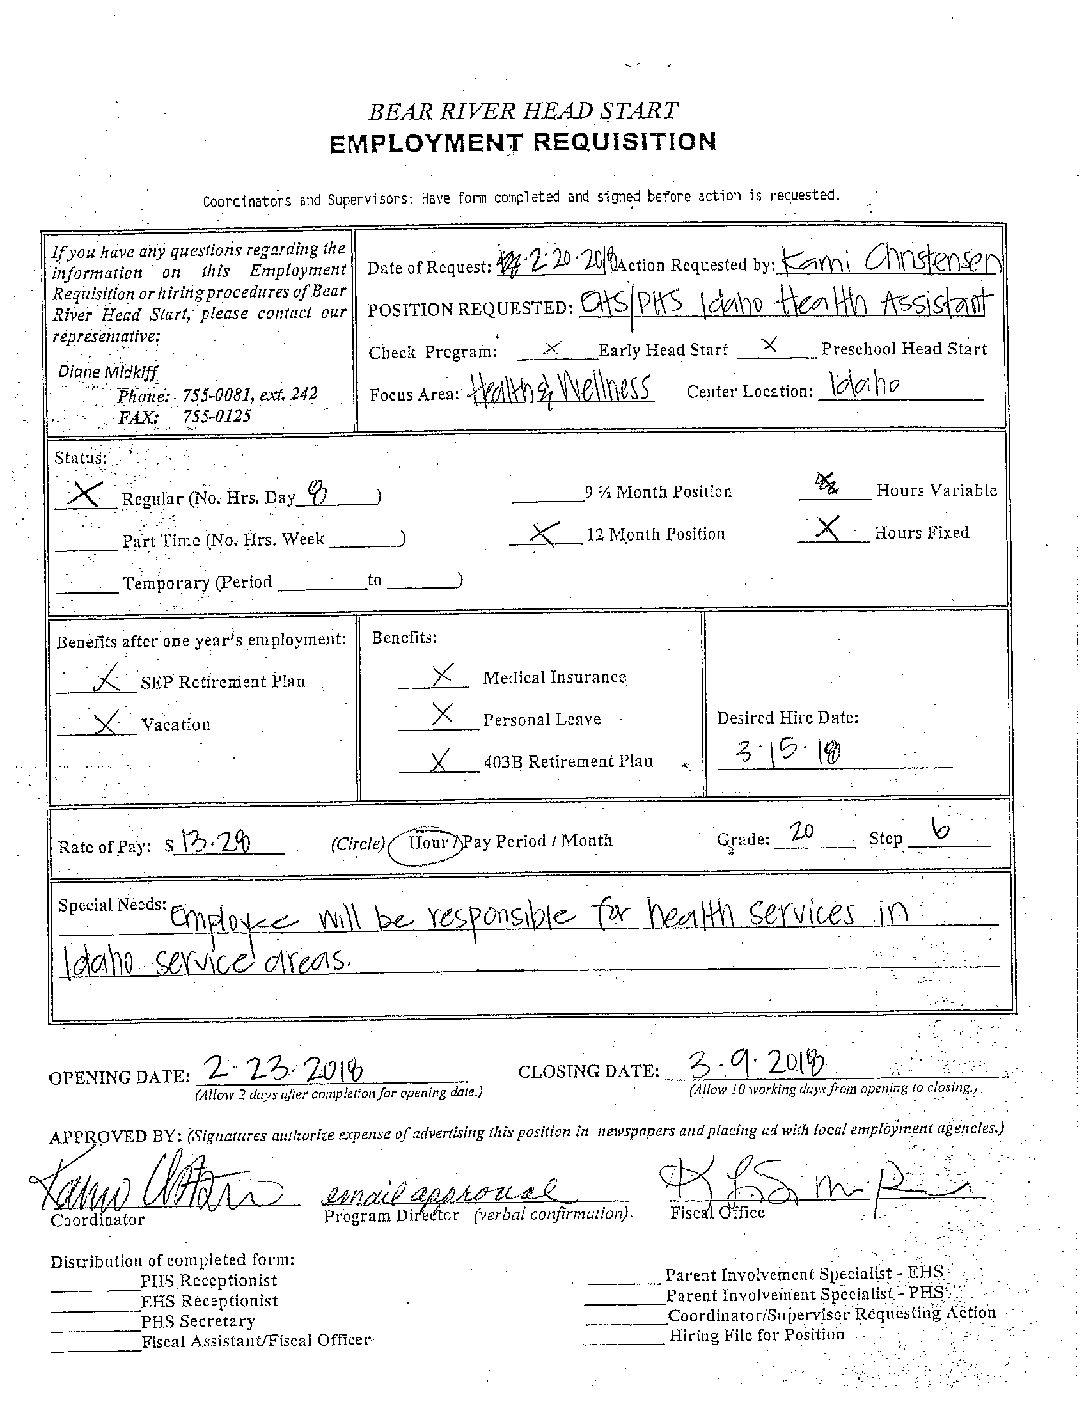 BEAR RIVER HEAD START
EMPLOYMENT REQUISITION
Coordinators and Supervisors: Have form completed and signed before action is requested.
If you have any questions regarding the
information on this Employment
Requisition or hiring procedures of Bear
River Head Start, please contact our
representative:
Diane Midkiff
Phone: 755-0081, ext. 242
FAX: 755-0125
Date of Request: 2-20-2018 Action Requested by: Kami Christensen
POSITION REQUESTED: EHS/PHS Idaho Health Assistant
Check Program: X Early Head Start X Preschool Head Start
Focus Area: Health & Wellness Center Location: Idaho
Status:
X Regular (No. Hrs. Day 8 ) 9 ½ Month Position Hours Variable
Part Time (No. Hrs. Week ) X 12 Month Position X Hours Fixed
Temporary (Period to )
Benefits after one year's employment:
X SEP Retirement Plan
X Vacation
Benefits:
X Medical Insurance
X Personal Leave
X 403B Retirement Plan
Desired Hire Date:
3-15-18
Rate of Pay: $ 13.28 (Circle) Hour / Pay Period / Month Grade: 20 Step 6
Special Needs: Employee will be responsible for health services in
Idaho service areas.
OPENING DATE: 2-23-2018 CLOSING DATE: 3-9-2018
(Allow 2 days after completion for opening date.) (Allow 10 working days from opening to closing.)
APPROVED BY: (Signatures authorize expense of advertising this position in newspapers and placing ad with local employment agencies.)
email approval
Coordinator Program Director (verbal confirmation). Fiscal Office
Distribution of completed form:
PHS Receptionist
EHS Receptionist
PHS Secretary
Fiscal Assistant/Fiscal Officer
Parent Involvement Specialist - EHS
Parent Involvement Specialist - PHS
Coordinator/Supervisor Requesting Action
Hiring File for Position